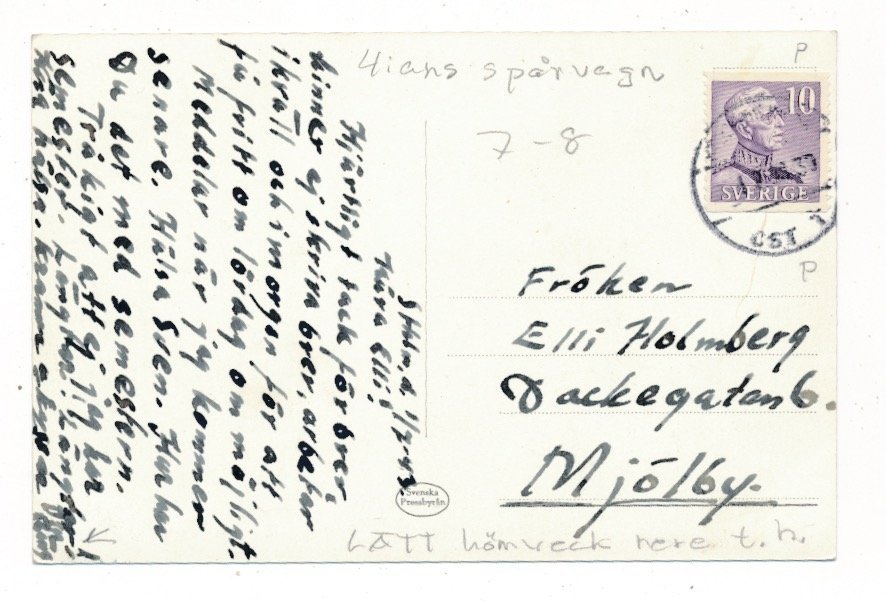 4:ans spårvagn
P
7-8
10
SVERIGE
CSI 1
P
Sthlm, d.
Kära Elli!
Hjärtligt tack för brev,
hinner ej skriva brev, arbetar
ikväll och imorgon för att
få fritt om lördag om möjligt.
Meddelar när jag kommer
senare. Hälsa Sven. Hur har
Du det med semestern.
Tråkigt att ej jag har
semester. Längtar! Längtar!
kramar
Fröken
Elli Holmberg
Dackegatan 6.
Mjölby.
Svenska
Pressbyrån
LÄTT hörnveck nere t.h.